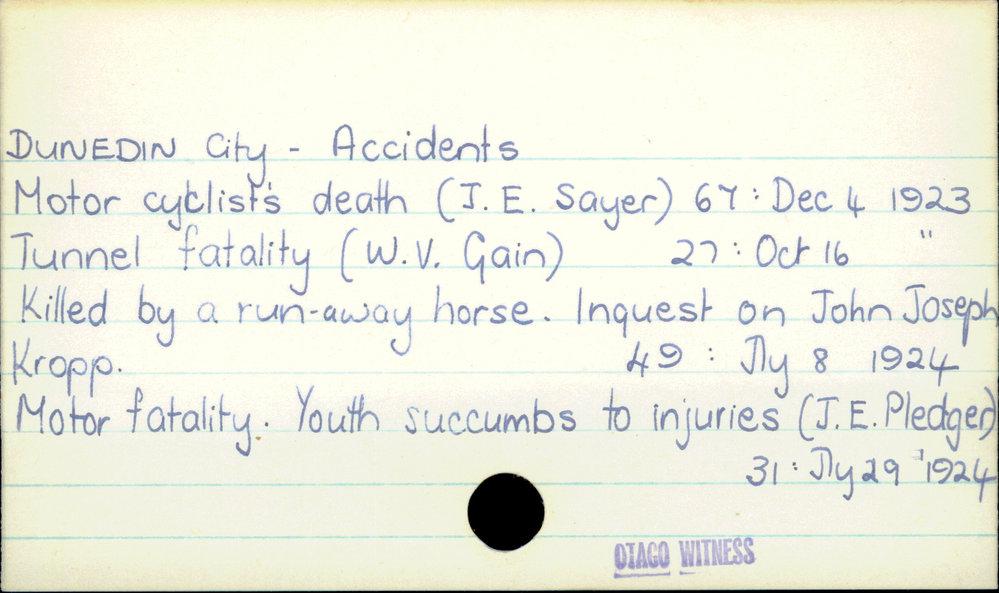 DUNEDIN City - Accidents
Motor cyclist's death (J. E. Sayer) 67 : Dec 4 1923
Tunnel fatality (W. V. Gain) 27 : Oct 16 "
Killed by a run-away horse. Inquest on John Joseph
Kropp. 49 : Jly 8 1924
Motor fatality. Youth succumbs to injuries (J. E. Pledger)
31 : Jly 29 1924
OTAGO WITNESS